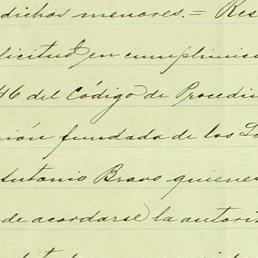 dichos menores. = Res
licitud en cumplimie
46 del Código de Procedi
ión fundada de los D
Antonio Bravo quiene
de acordarse la autori